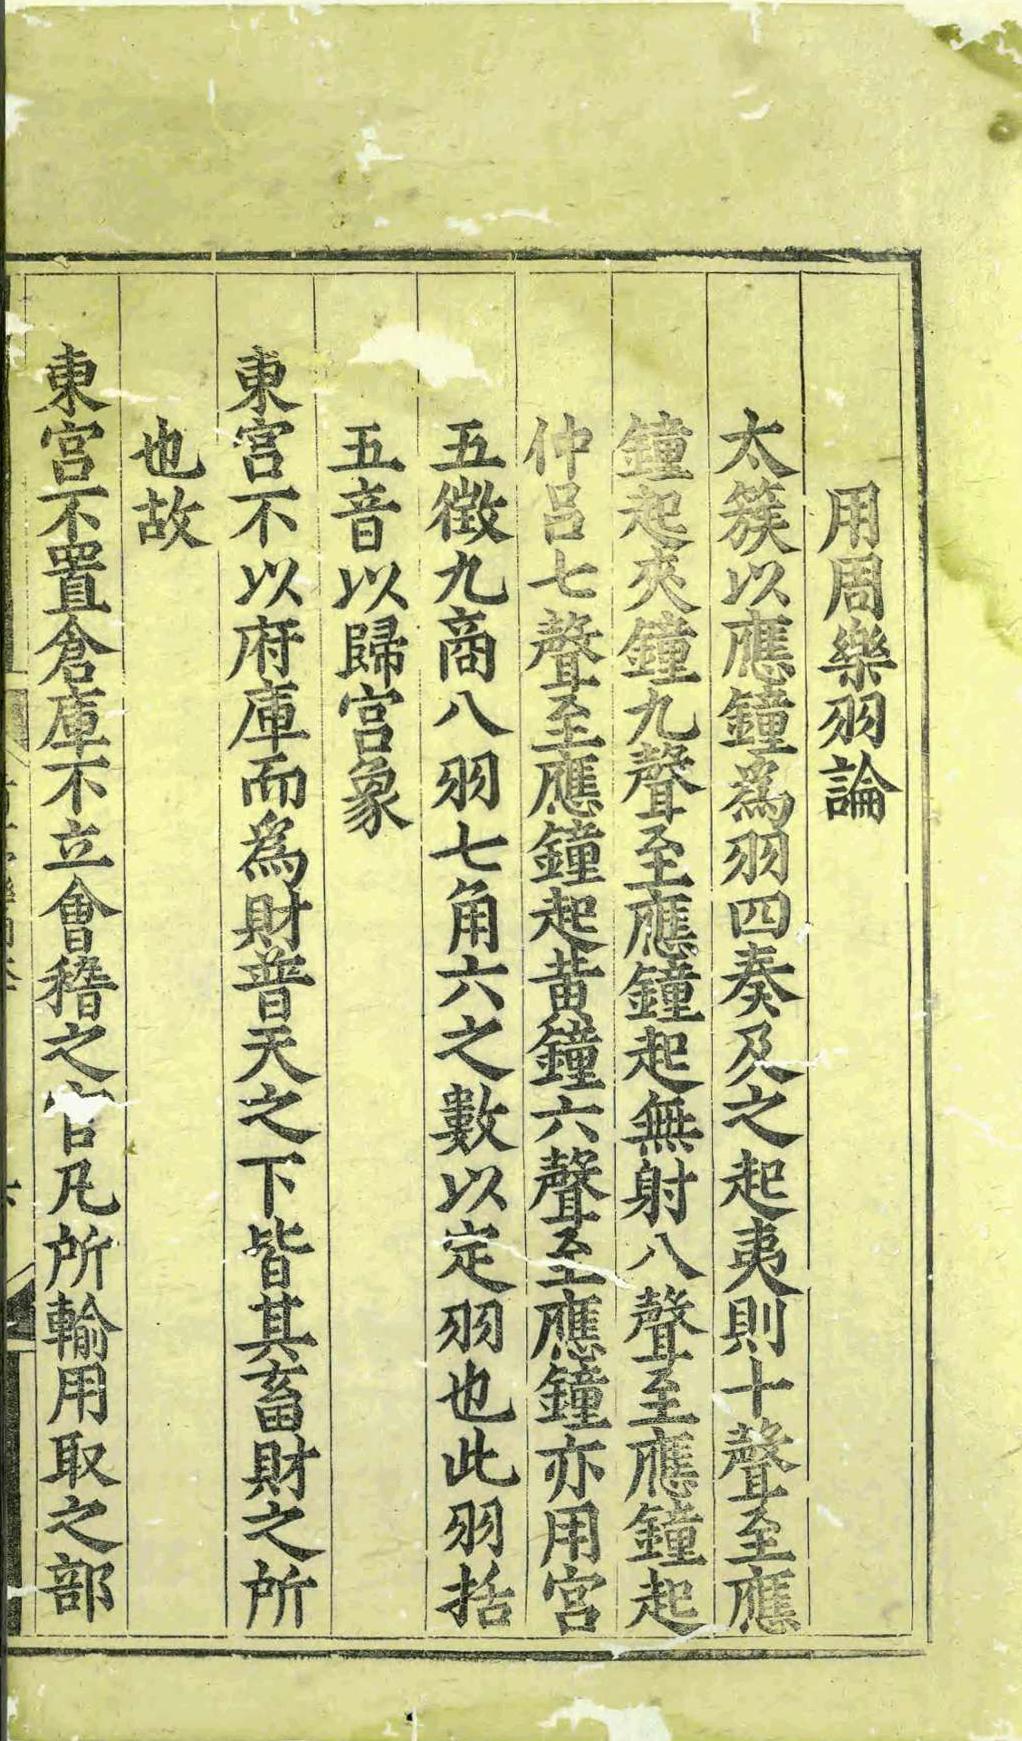 用周樂羽論
太簇以應鐘為羽四奏及之起夷則十聲至應
鐘起夾鐘九聲至應鐘起無射八聲至應鐘起
仲呂七聲至應鐘起黃鐘六聲至應鐘亦用宮
五徵九商八羽七角六之數以定羽也此羽括
五音以歸宮象
東宮不以府庫而為財普天之下皆其畜財之所
也故
東宮不置倉庫不立會稽之官凡所輸用取之部